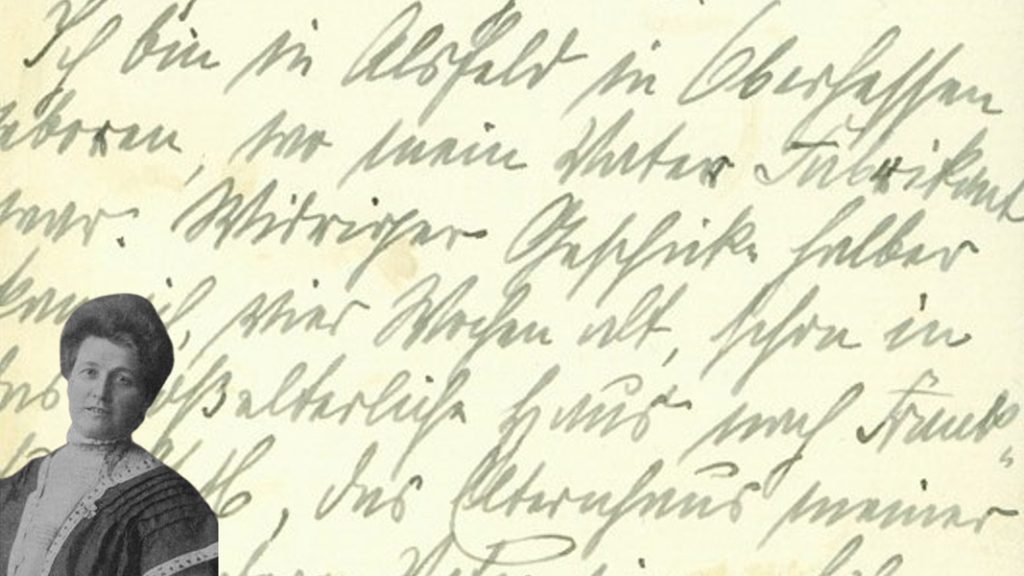 Ich bin in Alsfeld in Oberhessen
eboren, wo mein Vater Fabrikant
war. Widriger Geschicke halber
kam ich, vier Wochen alt, schon in
das oßelterliche Haus nach Frank„
das Elternhaus meiner